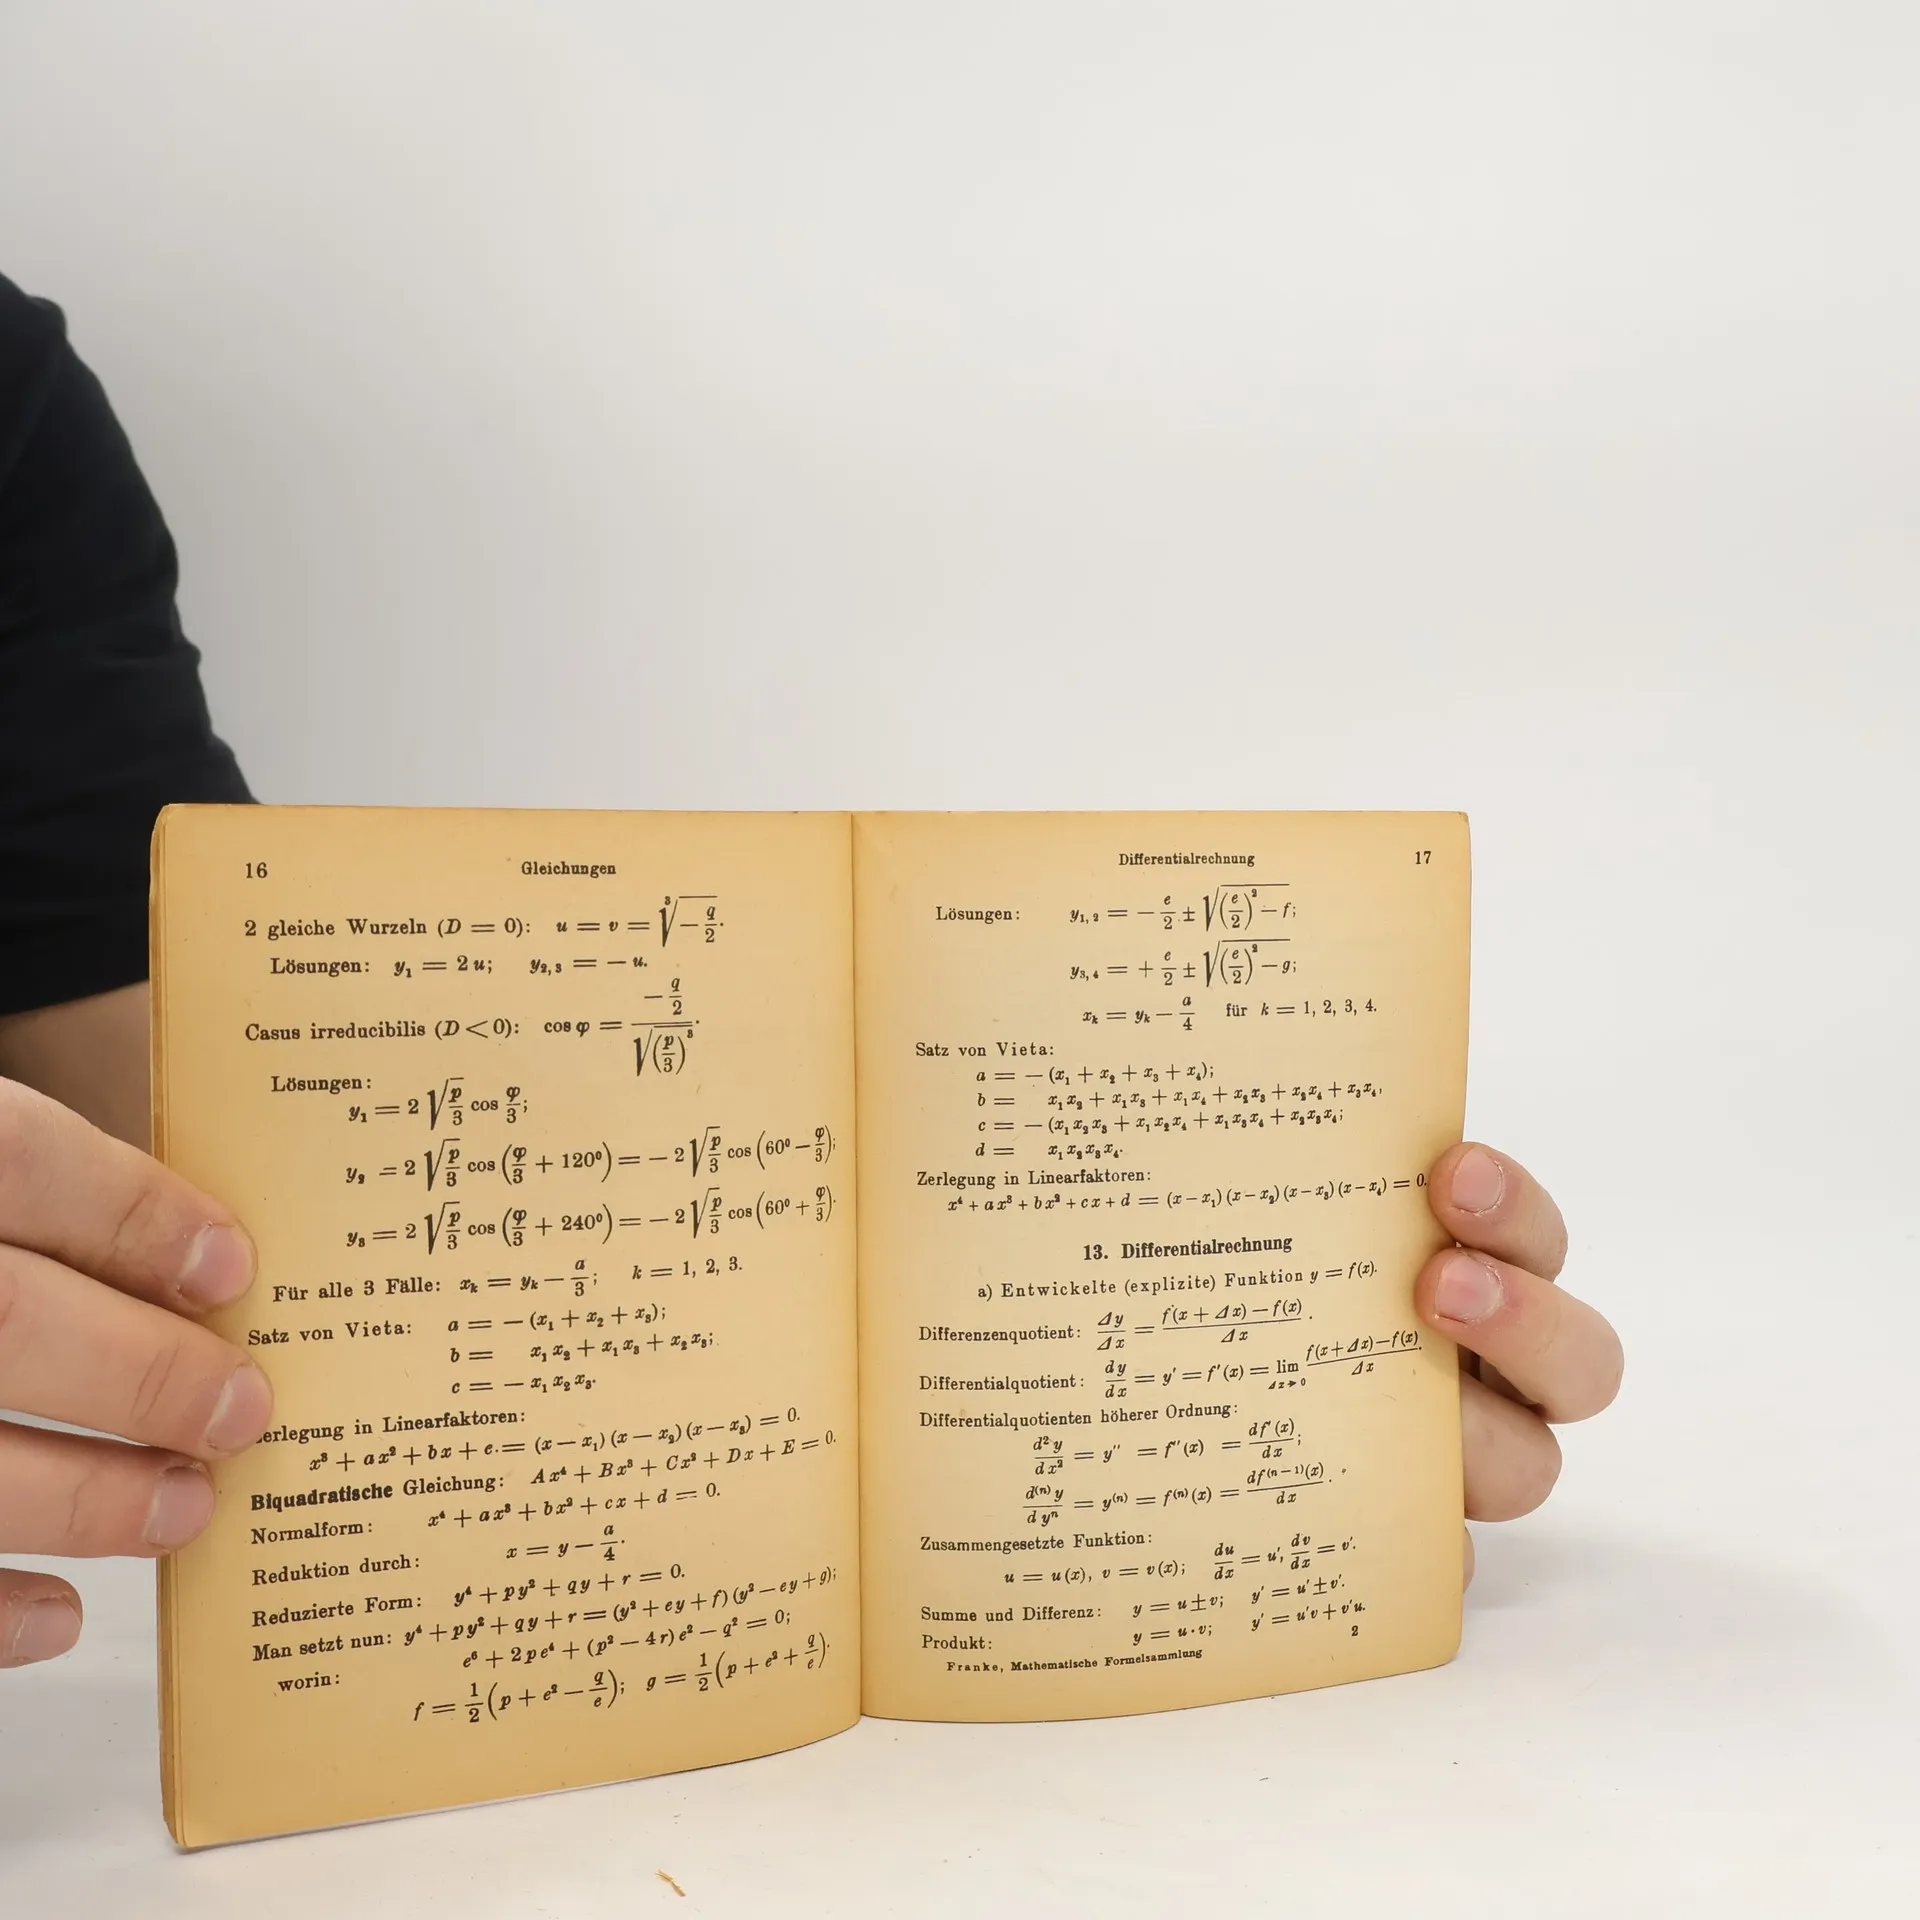 16 Gleichungen
2 gleiche Wurzeln (D = 0): u = v = ∛(−q/2).
Lösungen: y₁ = 2u; y₂,₃ = −u.
Casus irreducibilis (D < 0): cos φ = (−q/2)/√((p/3)³).
Lösungen:
y₁ = 2 √(p/3) cos φ/3;
y₂ = 2 √(p/3) cos (φ/3 + 120⁰) = − 2 √(p/3) cos (60⁰ − φ/3);
y₃ = 2 √(p/3) cos (φ/3 + 240⁰) = − 2 √(p/3) cos (60⁰ + φ/3).
Für alle 3 Fälle: xₖ = yₖ − a/3; k = 1, 2, 3.
Satz von Vieta: a = − (x₁ + x₂ + x₃);
b = x₁x₂ + x₁x₃ + x₂x₃;
c = − x₁x₂x₃.
erlegung in Linearfaktoren:
x³ + ax² + bx + e = (x − x₁)(x − x₂)(x − x₃) = 0.
Biquadratische Gleichung: Ax⁴ + Bx³ + Cx² + Dx + E = 0.
Normalform: x⁴ + ax³ + bx² + cx + d = 0.
Reduktion durch: x = y − a/4.
Reduzierte Form: y⁴ + py² + qy + r = 0.
Man setzt nun: y⁴ + py² + qy + r = (y² + ey + f)(y² − ey + g);
worin: e⁶ + 2pe⁴ + (p² − 4r)e² − q² = 0;
f = 1/2 (p + e² − q/e); g = 1/2 (p + e² + q/e).
Differentialrechnung 17
Lösungen: y₁,₂ = − e/2 ± √((e/2)² − f);
y₃,₄ = + e/2 ± √((e/2)² − g);
xₖ = yₖ − a/4 für k = 1, 2, 3, 4.
Satz von Vieta:
a = − (x₁ + x₂ + x₃ + x₄);
b = x₁x₂ + x₁x₃ + x₁x₄ + x₂x₃ + x₂x₄ + x₃x₄,
c = − (x₁x₂x₃ + x₁x₂x₄ + x₁x₃x₄ + x₂x₃x₄;
d = x₁x₂x₃x₄.
Zerlegung in Linearfaktoren:
x⁴ + ax³ + bx² + cx + d = (x − x₁)(x − x₂)(x − x₃)(x − x₄) = 0.
13. Differentialrechnung
a) Entwickelte (explizite) Funktion y = f(x).
Differenzenquotient: Δy/Δx = (f(x + Δx) − f(x))/Δx.
Differentialquotient: dy/dx = y′ = f′(x) = lim Δx→0 (f(x + Δx) − f(x))/Δx.
Differentialquotienten höherer Ordnung:
d²y/dx² = y″ = f″(x) = df′(x)/dx;
d⁽ⁿ⁾y/dyⁿ = y⁽ⁿ⁾ = f⁽ⁿ⁾(x) = df⁽ⁿ⁻¹⁾(x)/dx.
Zusammengesetzte Funktion:
u = u(x), v = v(x); du/dx = u′, dv/dx = v′.
Summe und Differenz: y = u ± v; y′ = u′ ± v′.
Produkt: y = u · v; y′ = u′v + v′u.
Franke, Mathematische Formelsammlung 2